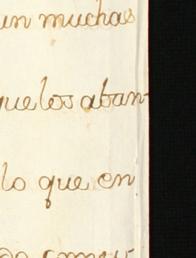 un muchas
que los aban-
lo que en